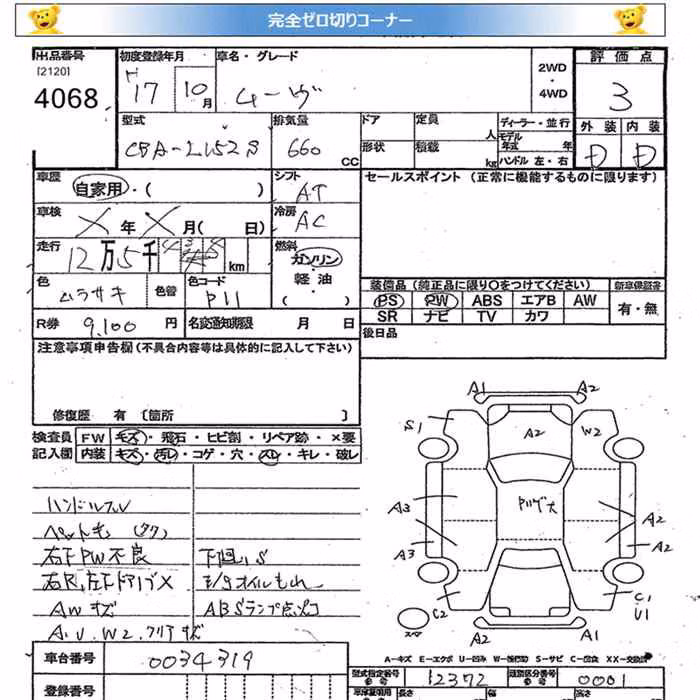 完全ゼロ切りコーナー
出品番号
[2120]
4068
初度登録年月
H 17 10月
車名・グレード
ムーヴ
2WD・4WD
評価点
3
外装 内装
D D
型式
CBA-L152S
排気量
660 CC
ドア
形状
定員 人
積載 kg
ディーラー・並行
モデル年式 年
ハンドル 左・右
車歴
自家用・( )
シフト
AT
セールスポイント (正常に機能するものに限ります)
車検
X年X月( 日)
冷房
AC
走行
12万5千 km
燃料
ガソリン・軽油・( )
色
ムラサキ
色替
色コード
P11
装備品 (純正品に限り〇をつけてください)
新車保証書
PS PW ABS エアB AW
SR ナビ TV カワ
有・無
R券 9,100 円
名変通知期限 月 日
後日品
注意事項申告欄(不具合内容等は具体的に記入して下さい)
修復歴 有 〔箇所 〕
検査員記入欄
FW キズ・飛石・ヒビ割・リペア跡・×要
内装 キズ・汚レ・コゲ・穴・スレ・キレ・破レ
ハンドルスレ
右下PW不良
AWキズ
下回りS
E/gオイルもれ
ABSランプ点灯
A1 A2
S1 A2 W2
A3 A2
A3 A2
C2 C1
U1
スペア
A2 A1
A-キズ E-エクボ U-凹み W-補修跡 S-サビ C-腐食 XX-交換済
車台番号 0034319
型式指定番号 12372
類別区分番号 0001
登録番号